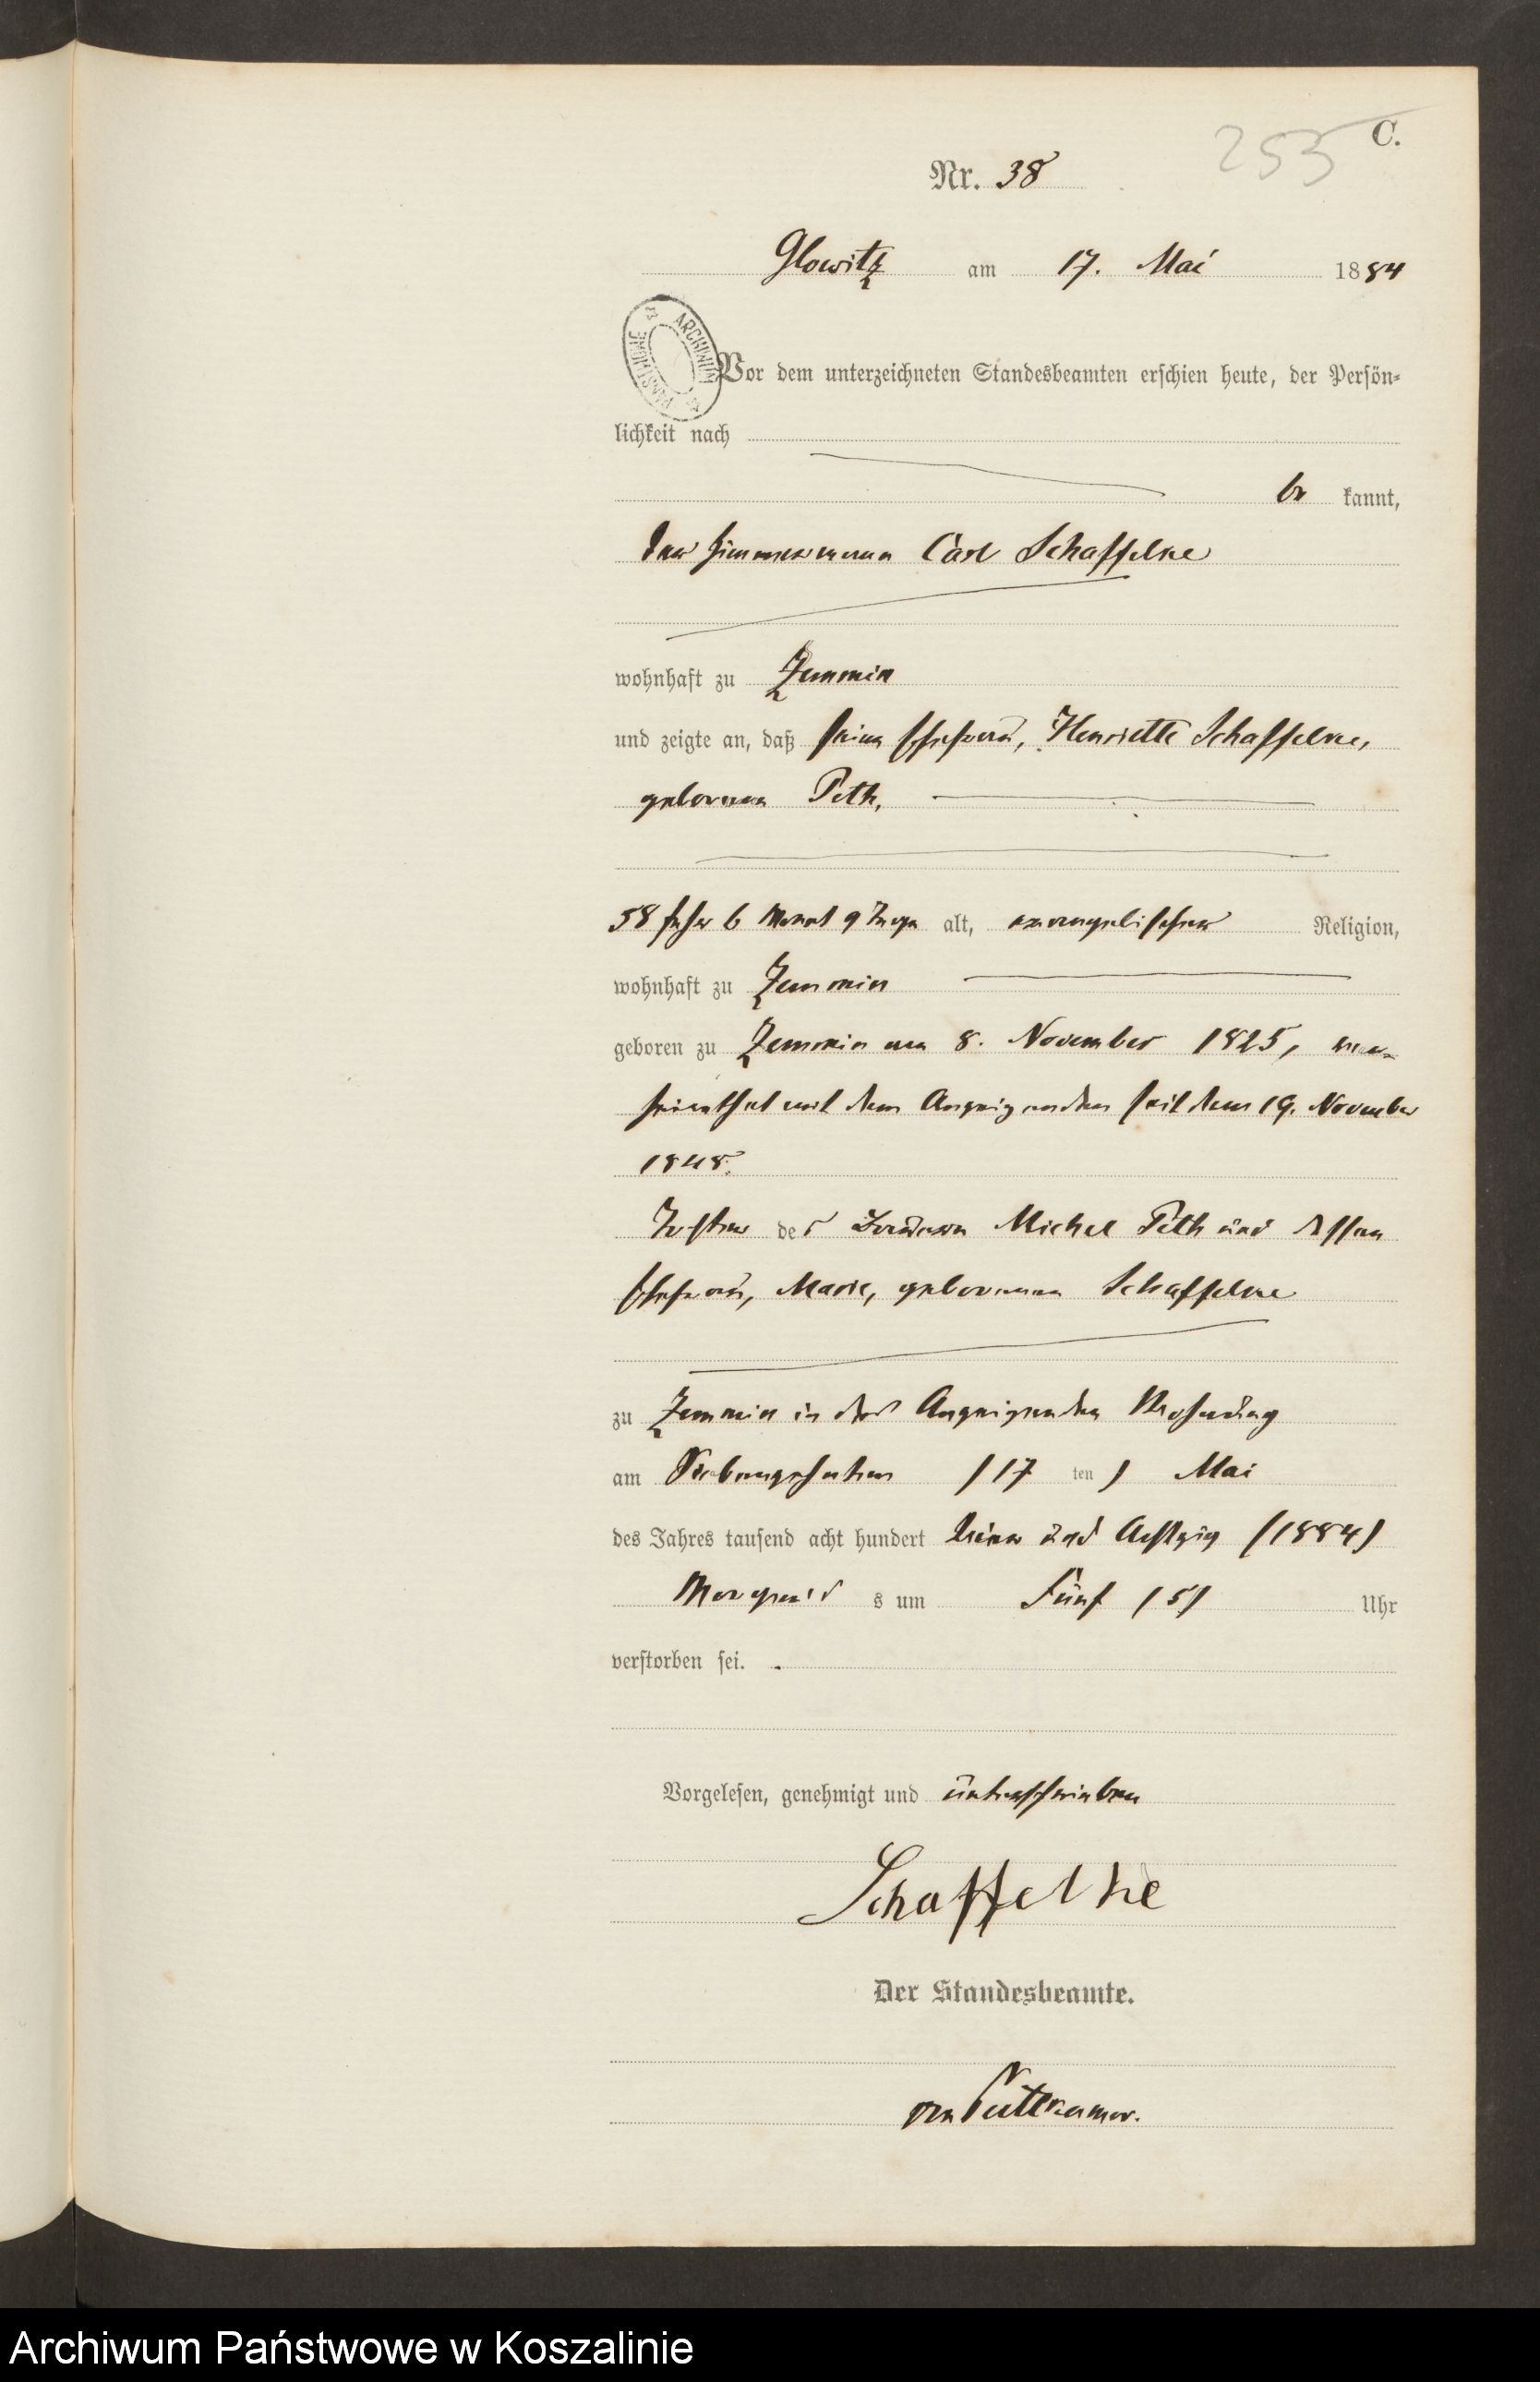 255 C.
Nr. 38
Glowitz am 17. Mai 1884
ARCHIWUM PAŃSTWOWE
Vor dem unterzeichneten Standesbeamten erschien heute, der Persön-
lichkeit nach
be kannt,
der Zimmermann Carl Schaffelke
wohnhaft zu Zemmin
und zeigte an, daß seine Ehefrau, Henriette Schaffelke,
geborenen Peth,
58 Jahr 6 Monat 9 Tage alt, evangelischer Religion,
wohnhaft zu Zemmin
geboren zu Zemmin am 8. November 1825, ver-
heirathet mit dem Anzeigenden seit dem 19. November
1848.
Tochter des Michel Peth und dessen
Ehefrau, Marie, geborenen Schaffelke
zu Zemmin in des Anzeigenden Wohnung
am Siebenzehnten (17 ten) Mai
des Jahres tausend acht hundert vier und Achtzig (1884)
Morgens s um Fünf (5) Uhr
verstorben sei.
Vorgelesen, genehmigt und unterschrieben
Schaffelke
Der Standesbeamte.
von Puttkamer.
Archiwum Państwowe w Koszalinie